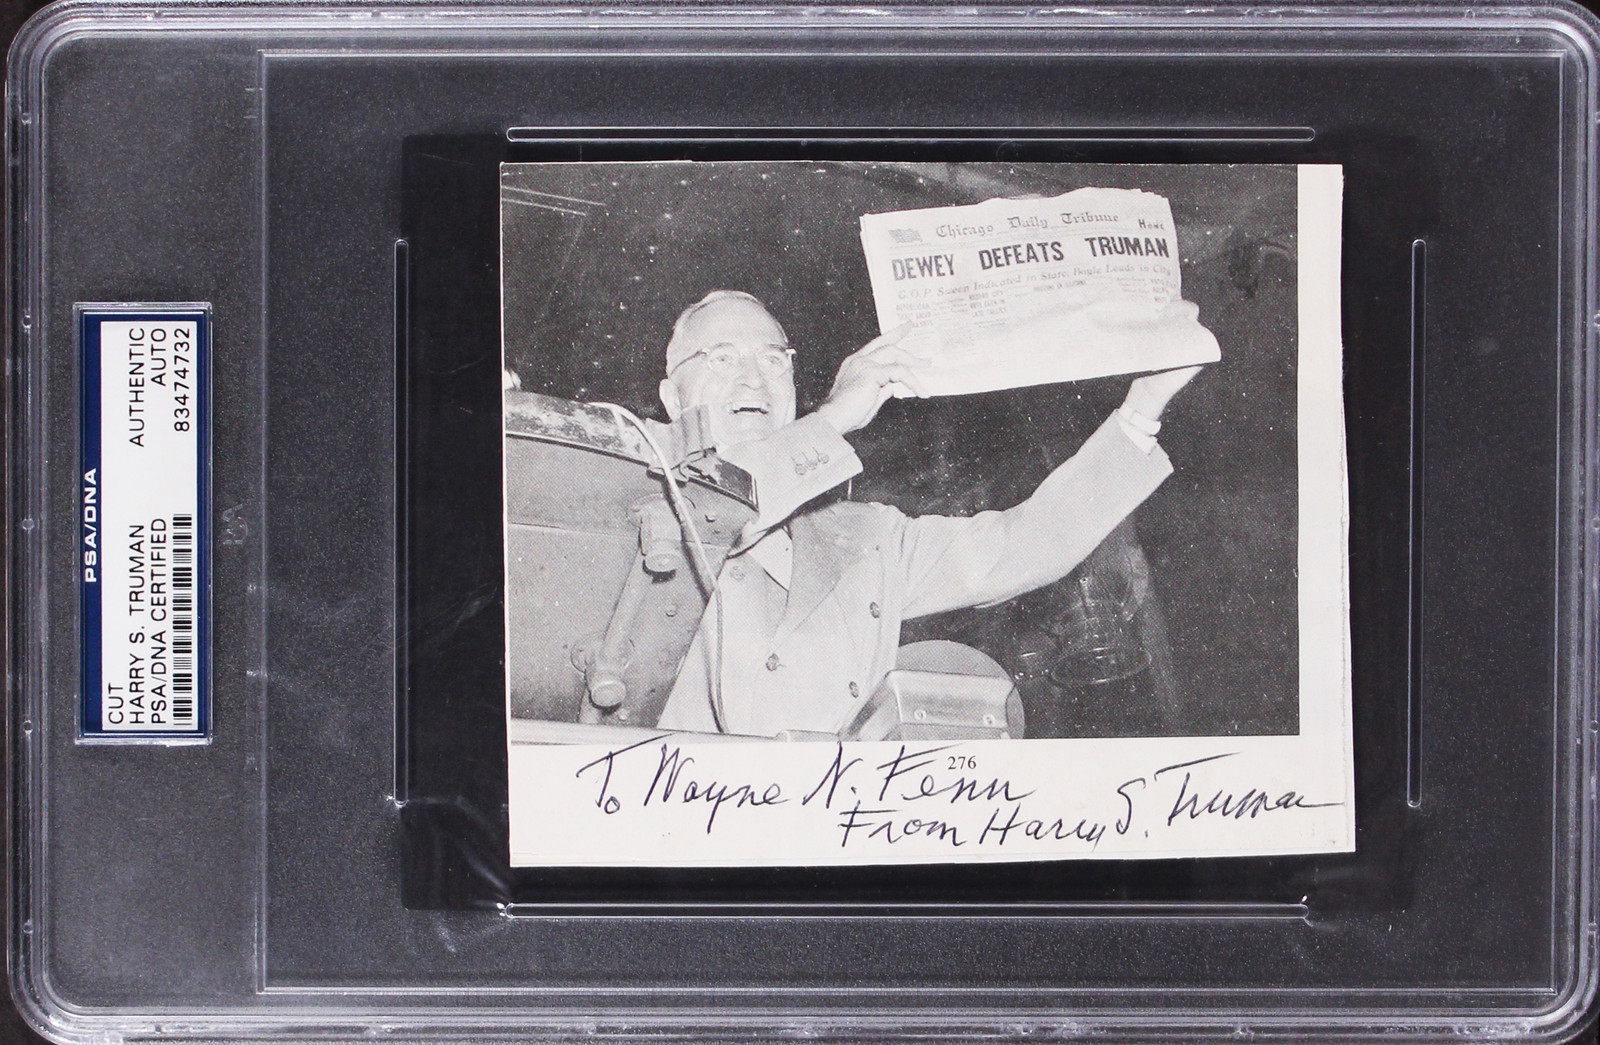 PSA/DNA
CUT
HARRY S. TRUMAN
PSA/DNA CERTIFIED
AUTHENTIC
AUTO
83474732
Chicago Daily Tribune
HOME
DEWEY DEFEATS TRUMAN
G.O.P. Sweep Indicated in State; Boyle Leads in City
276
To Wayne N. Fenn
From Harry S. Truman